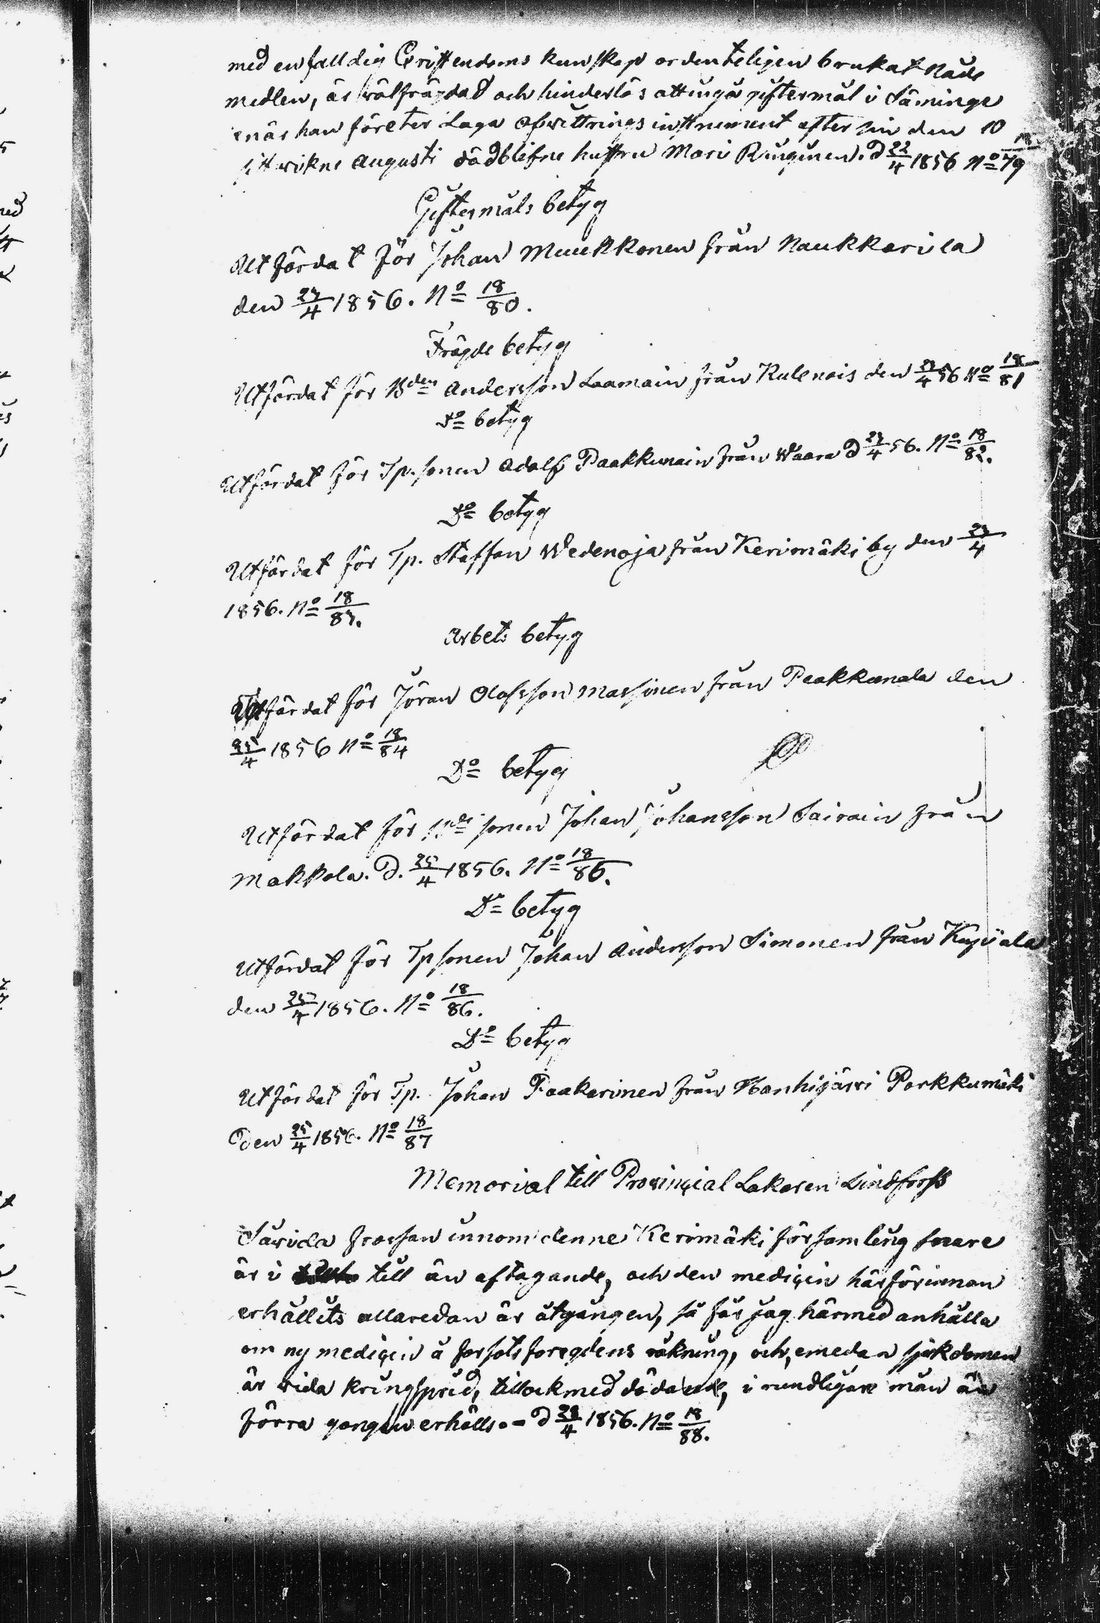 med enfalldig Cristendoms kunskap ordenteligen brukat Nåde
medlen, är wälfrägdad och hinderlös att ingå giftermål i Säminge
enär han företer Laga afwittrings instrument efter sin den 10
sistwikne Augusti dödblifne hustru Mari Ruuhinen. D 22/4 1856 No 18/79
Giftermåls betyg
Utfördat för Johan Muukkonen från Naukkarila
den 23/4 1856. No 18/80.
Frägde betyg
Utfördat för Bden Andersson Laamain från Kulenois den 23/4 56 No 18/81
Do betyg
Utfördat för Tp.sonen Adolf Paakkunain från Waara D 23/4 56. No 18/82.
Do betyg
Utfördat för Tp. Staffan Wedenoja från Kerimäki by den 23/4
1856. No 18/83.
Arbets betyg
Utfördat för Jöran Olofsson Massinen från Paakkunala den
25/4 1856 No 18/84
Do betyg
Utfördat för Bde sonen Johan Johansson Sairain från
Makkola. D. 25/4 1856. No 18/85.
Do betyg
Utfördat för Tpsonen Johan Andersson Simonen från
den 25/4 1856. No 18/86.
Do betyg
Utfördat för Tp. Johan Paakarinen från Hanhijärvi Porkkumäki
Den 25/4 1856. No 18/87
Memorial till Provincial Läkaren Lindforss
Såvida frossan innom denne Kerimäki församling snare
är i till än aftagande, och den medicin härförinnan
erhållits allaredan är åtgången, så får jag härmed anhålla
om ny medicin å räkning, och, emedan sjukdomen
är vida kringspridd, tillock med dödande, i rundligare mån än
förra gangen erhölls. - D 28/4 1856. No 18/88.